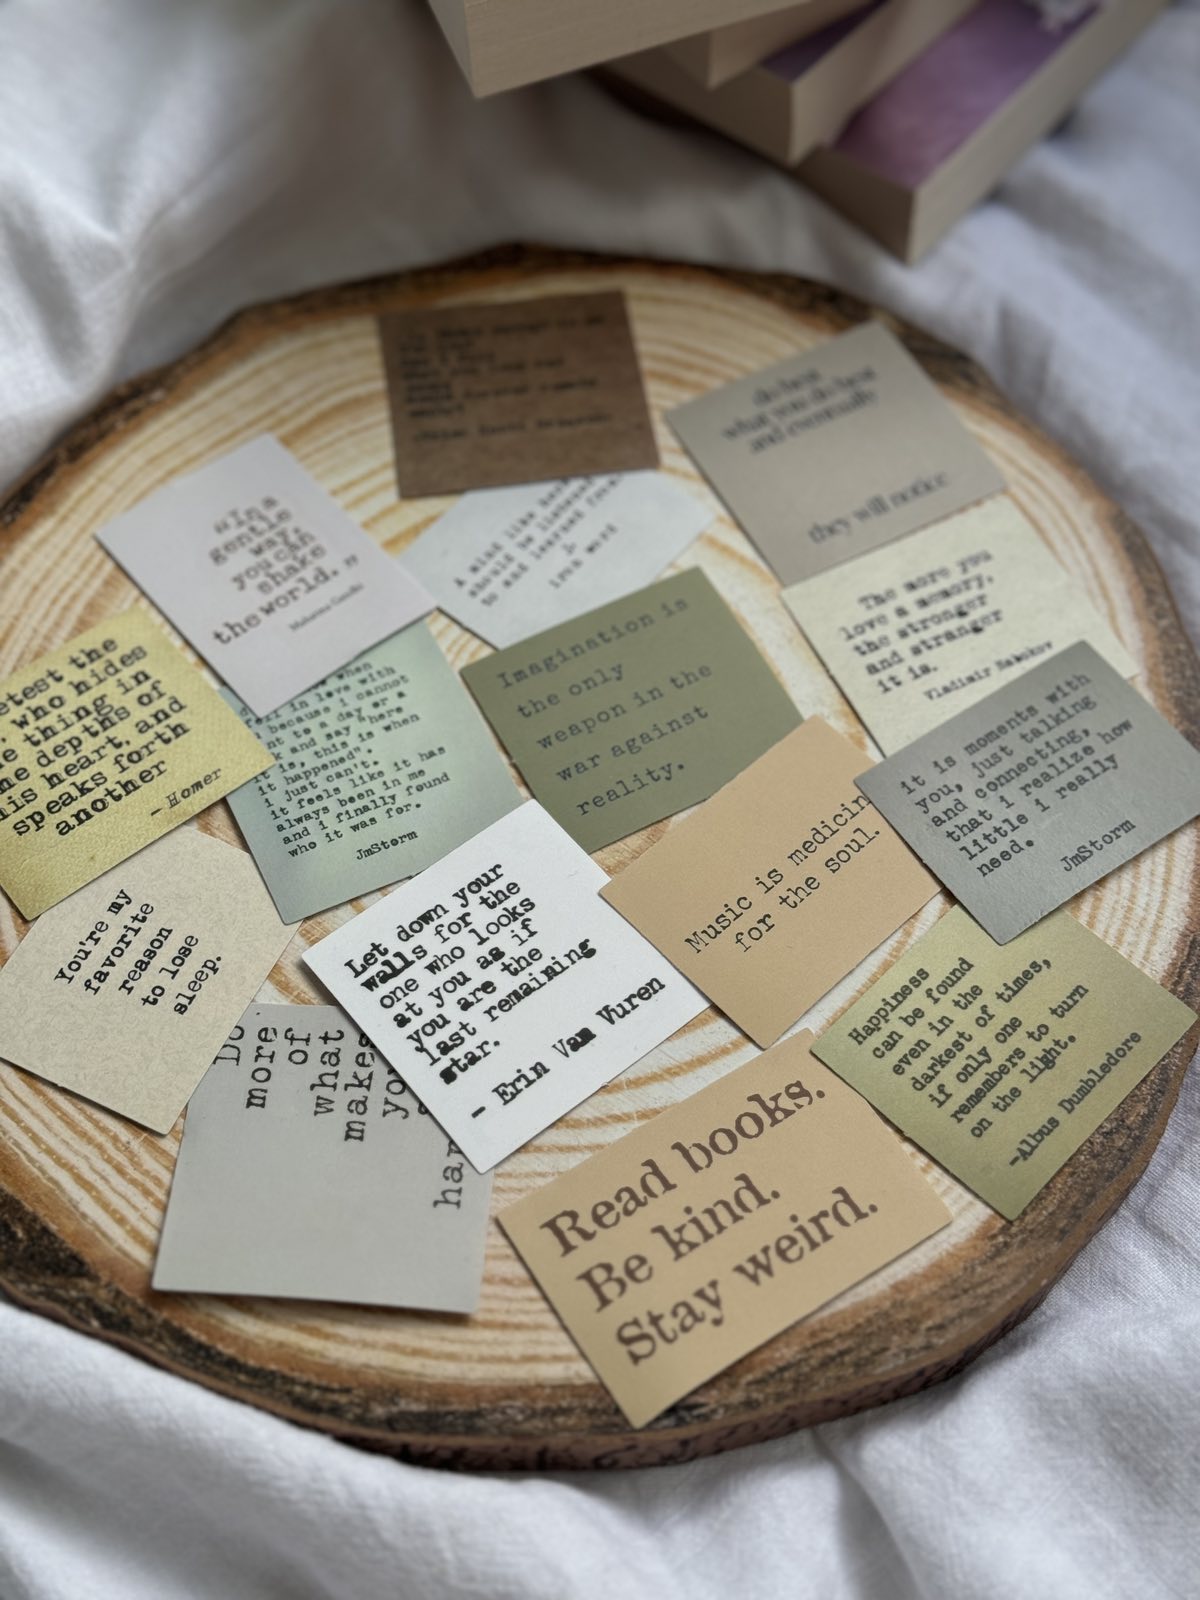 do best
what you do best
and eventually
they will notice
"In a
gentle
way,
you can
shake
the world."
Mahatma Gandhi
A mind like
should be
to and learned
The more you
love a memory,
the stronger
and stranger
it is.
Vladimir Nabokov
Imagination is
the only
weapon in the
war against
reality.
the
who hides
thing in
depths of
his heart, and
speaks forth
another
- Homer
when
in love with
because I cannot
to a day or a
and say "here
it is, this is when
it happened".
i just can't.
it feels like it has
always been in me
and i finally found
who it was for.
JmStorm
it is moments with
you, just talking
and connecting,
that i realize how
little i really
need.
JmStorm
Music is medicin
for the soul.
You're my
favorite
reason
to lose
sleep.
Let down your
walls for the
one who looks
at you as if
you are the
last remaining
star.
- Erin Van Vuren
Happiness
can be found
even in the
darkest of times,
if only one
remembers to turn
on the light.
-Albus Dumbledore
Do
more
of
what
makes
you
Read books.
Be kind.
Stay weird.